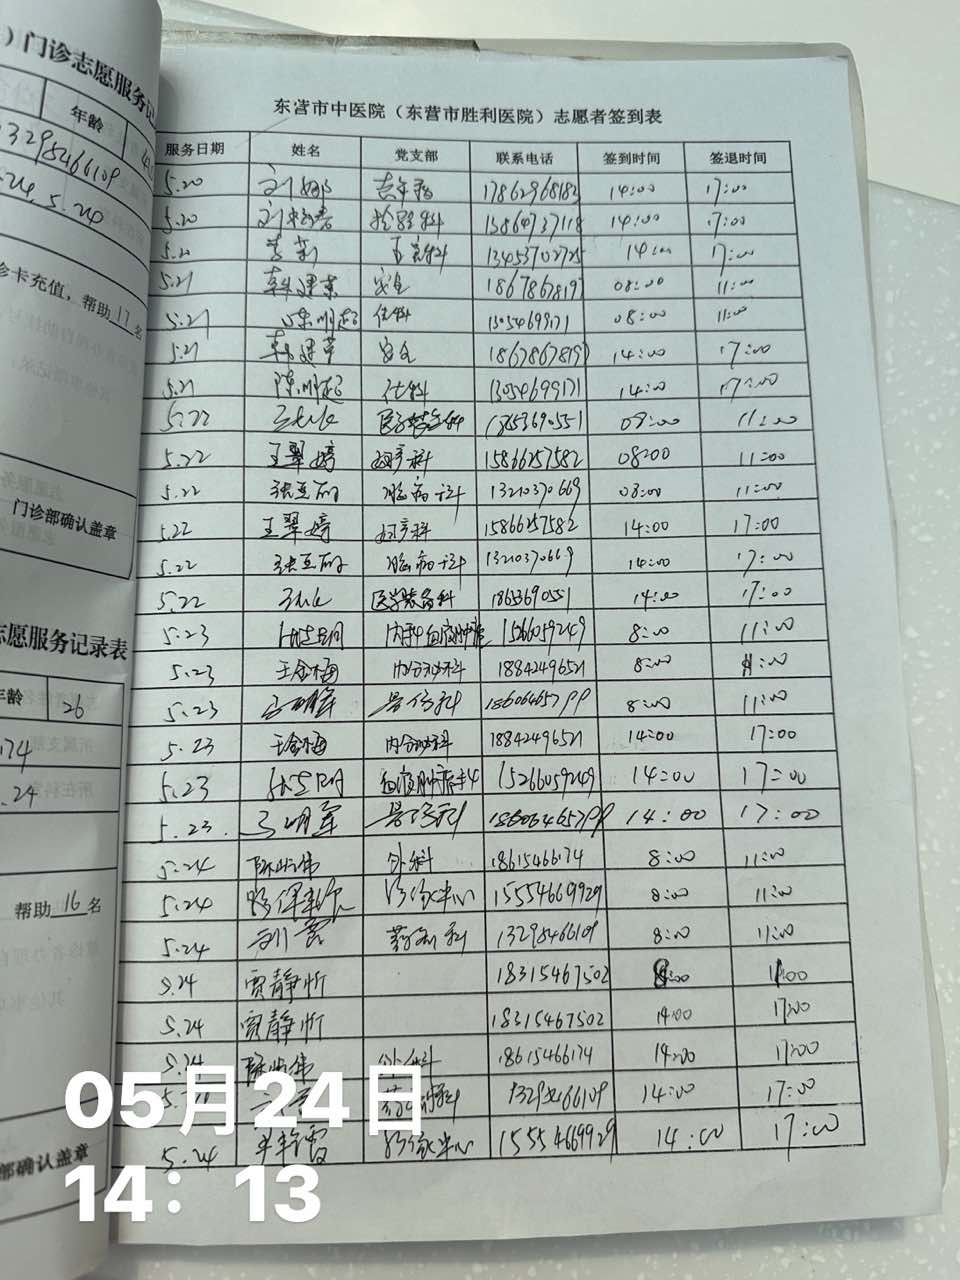 门诊志愿服务记
年龄
13295466109
5.24, 5.24
诊卡充值，帮助17名
门诊部确认盖章
志愿服务记录表
年龄 26
174
.24
帮助16名
部确认盖章
东营市中医院（东营市胜利医院）志愿者签到表
服务日期 姓名 党支部 联系电话 签到时间 签退时间
5.20 17862968183 14:00 17:00
5.20 检验科 13864737118 14:00 17:00
5.20 13453702725 14:00 17:00
5.21 韩建革 安全 18678678197 08:00 11:00
5.21 陈明起 13054699171 08:00 11:00
5.21 韩建革 安全 18678678197 14:00 17:00
5.21 陈明起 13054699171 14:00 17:00
5.22 医学装备科 18653690551 08:00 11:00
5.22 王翠婷 妇产科 15866257582 08:00 11:00
5.22 脑病二科 13210370669 08:00 11:00
5.22 王翠婷 妇产科 15866257582 14:00 17:00
5.22 脑病二科 13210370669 14:00 17:00
5.22 医学装备科 18653690551 14:00 17:00
5.23 15266059249 8:00 11:00
5.23 王金梅 内分泌科 18842496521 8:00 11:00
5.23 18606465799 8:00 11:00
5.23 王金梅 内分泌科 18842496521 14:00 17:00
5.23 血液肿瘤科 15266059249 14:00 17:00
5.23 18606465799 14:00 17:00
5.24 外科 18615466174 8:00 11:00
5.24 影像中心 15554669929 8:00 11:00
5.24 药剂科 13295466109 8:00 11:00
5.24 贾静忻 18315467502 8:00 11:00
5.24 贾静忻 18315467502 14:00 17:00
5.24 外科 18615466174 14:00 17:00
药剂科 13295466109 14:00 17:00
5.24 影像中心 15554669929 14:00 17:00
05月24日
14：13